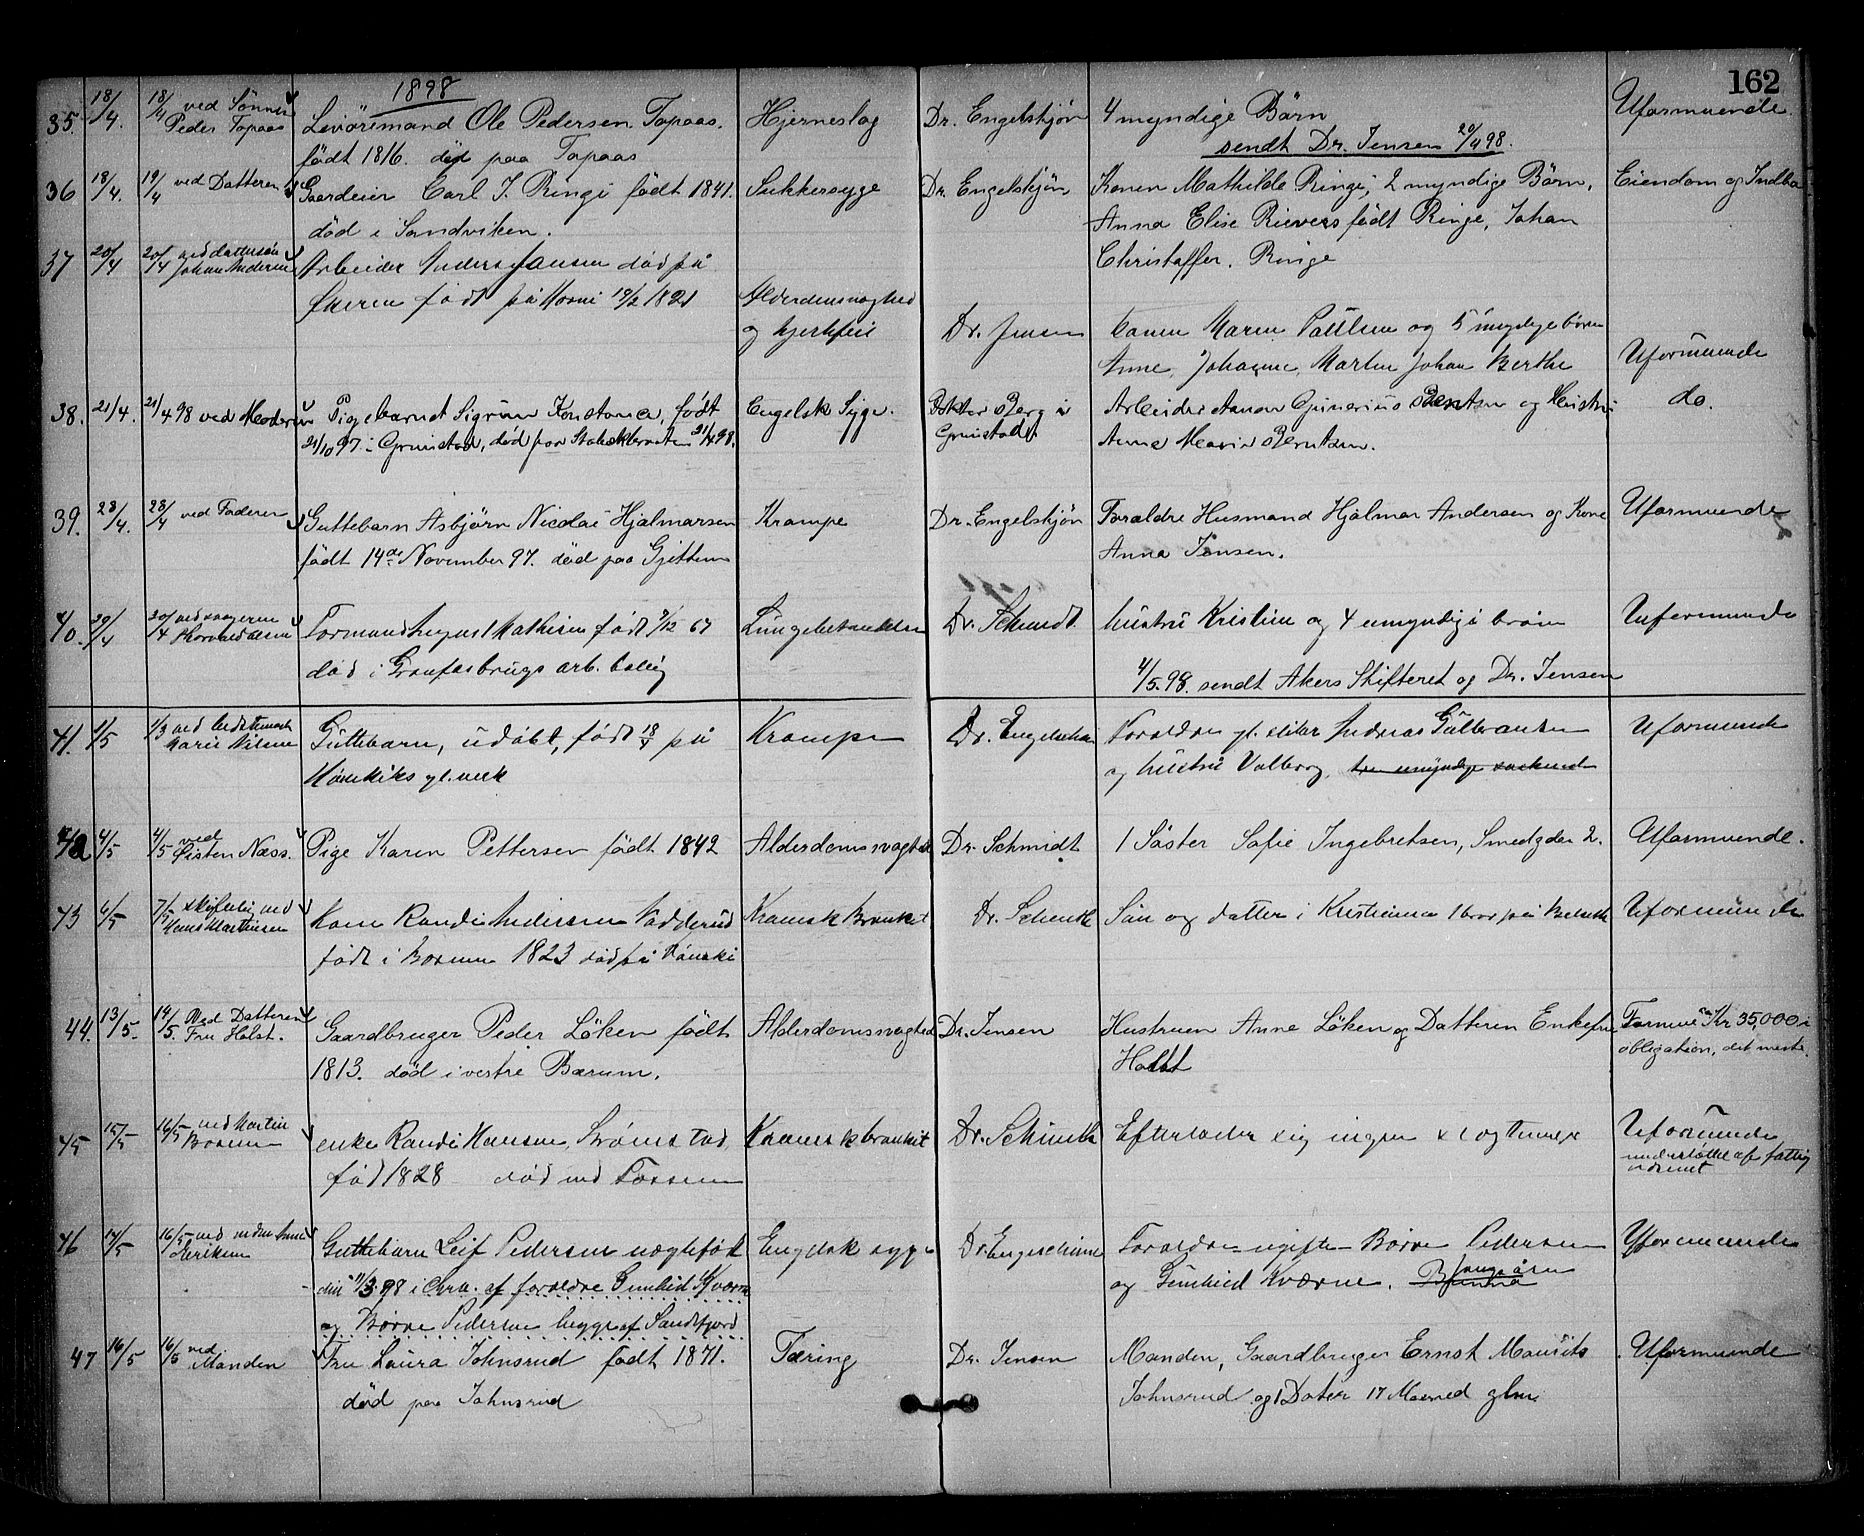 162
1898
35. 18/4. 18/4 ved Sønnen Peder Topaas
Levøremand Ole Pedersen Topaas.
født 1816. død paa Topaas
Hjerneslag
Dr. Engelskjøn
4 myndige Børn
sendt Dr. Jensen 20/4 98.
Uformuende
36 18/4. 19/4 ved Datteren
Gaardeier Carl J. Ringi født 1841.
død i Sandviken.
Sukkersyge
Dr. Engelskjøn
Konen Mathilde Ringi, 2 myndige Børn,
Anna Elise Rievers født Ringe, Johan
Christoffer Ringe
Eiendom og Indbo
37 20/4 20/4 ved dattersøn Johan Andersen
Arbeider Anders Hansen død på
født på 10/2 1821
Alderdomsvaghed
og hjertfeil
Dr. Jensen
Konen Maren Paulsen og 5 myndige børn
Anne, Johanne, Martin Johan Berthe
Uformuende
38. 21/4. 21/4 98 ved Moderen
Pigebarnet Sigrun Konstance, født
21/10 97 i Grimstad, død paa 21/4 98.
Engelsk Syge.
Doktor Berg i
Grimstad
Arbeider Anton Gunerius Berntsen og Hustru
Anne Marie Berntsen.
do.
39. 23/4. 23/4 ved Faderen
Guttebarn Asbjørn Nicolai Hjalmarsen
født 14de November 97. død paa Gjettum
Krampe
Dr. Engelskjøn
Forældre Husmand Hjalmar Andersen og Kone
Anna Jensen.
Uformuende
40. 29/4 30/4 ved svogeren
Formand August Mathisen født 9/12 67
død i Granfosbrugs arb. bolig
Lungebetændelse
Dr. Schmidt
hustru Kristine og 4 umyndige børn
4/5.98. sendt Akers Skifteret og Dr. Jensen
Uformuende
41. 1/5 1/3 ved bedstemoder Marie Nilsen
Guttebarn, udøbt, født 18/4 på
Hamkiks gl. verk
Krampe
Dr. Engelschøn
Forældre gl. sliber Andreas Gulbransen
og hustru Valborg,
Uformuende
42 4/5 4/5 ved Øisten Næss.
Pige Karen Pettersen født 1842
Alderdomssvaghed
Dr. Schmidt
1 Søster Sofie Ingebretsen, Smedgden 2.
Uformuende.
43 6/5 7/5 skriftelig ved Hans Martinsen
Kone Randi Andersen Vadderud
født i Bærum 1823 død på Hauski
Kronisk Bronkit
Dr. Schmidt
Søn og datter i Kristiania 1 bror på
Uformuende
44. 13/5. 14/5. Ved Datteren Fru Holst.
Gaardbruger Peder Løken født
1813. død i vestre Bærum.
Alderdomssvaghed
Dr. Jensen
Hustruen Anne Løken og Datteren Enkefru
Holst
Formue Kr 35,000 i
obligation, det meste.
45 15/5 16/5 ved Martin Bærum
enke Randi Hansen, Strømstad,
fød 1828 død ved Fossum
Kronisk bronkit
Dr. Schmidt
Efterlader sig ingen slægtninge
Uformuende
understøttet af fattig
væsenet
46 14/5 16/5 ved Eriksen
Guttebarn Leif Pedersen uægtefød
den 11/3 98 i Chra. af forældre Gunhild Kværne
og Børre Pedersen begge af Sandefjord
Engelsk syge
Dr Engelschiøn
Forældre ugifte Børre Pedersen
og Gunhild Kværne.
Uformuende
47 16/5 16/5 ved Manden
Fru Laura Johnsrud født 1871.
død paa Johnsrud
Tæring
Dr. Jensen
Manden, Gaardbruger Ernst Mauritz
Johnsrud og 1 Dater 17 Maaned glm.
Uformuende